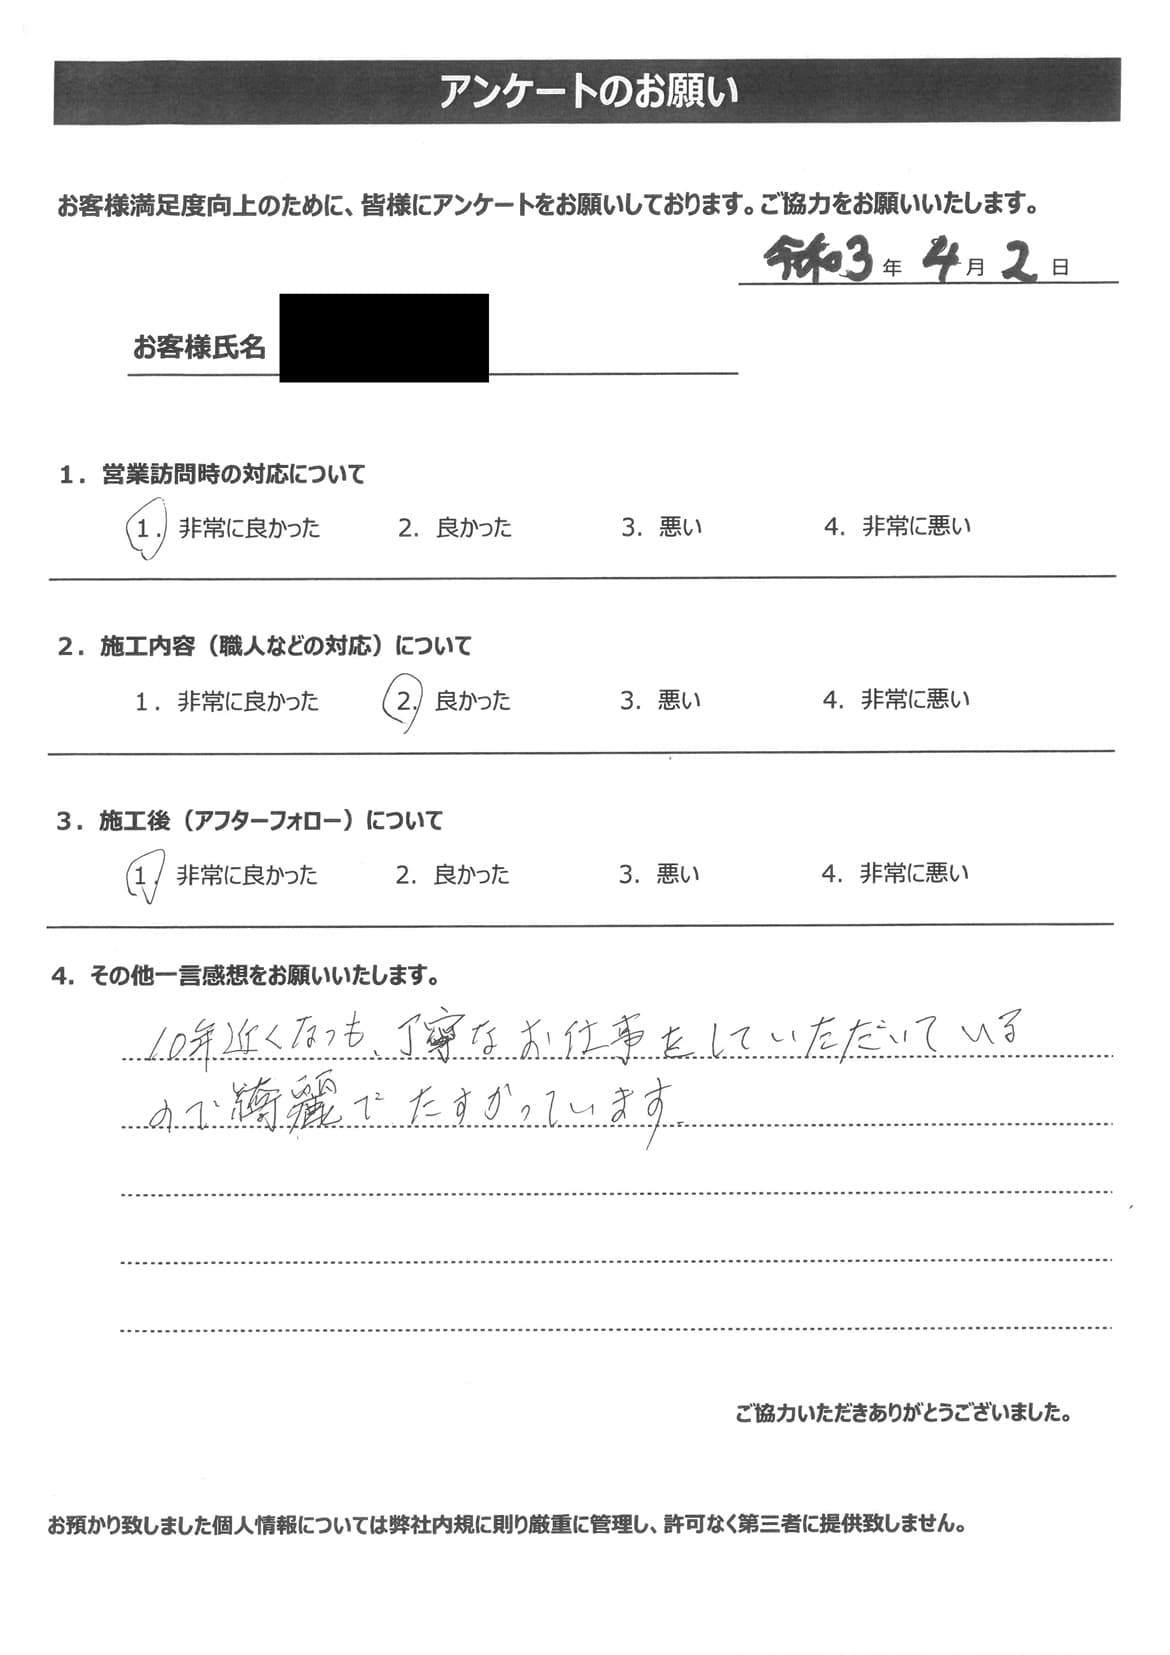 アンケートのお願い
お客様満足度向上のために、皆様にアンケートをお願いしております。ご協力をお願いいたします。
令和3年 4月 2日
お客様氏名
1. 営業訪問時の対応について
1. 非常に良かった 2. 良かった 3. 悪い 4. 非常に悪い
2. 施工内容（職人などの対応）について
1. 非常に良かった 2. 良かった 3. 悪い 4. 非常に悪い
3. 施工後（アフターフォロー）について
1. 非常に良かった 2. 良かった 3. 悪い 4. 非常に悪い
4. その他一言感想をお願いいたします。
10年近くなっも、丁寧なお仕事をしていただいている
ので綺麗でたすかっています。
ご協力いただきありがとうございました。
お預かり致しました個人情報については弊社内規に則り厳重に管理し、許可なく第三者に提供致しません。